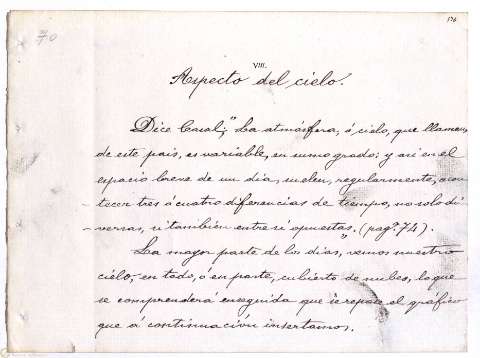 134
70
VIII.
Aspecto del cielo.
Dice Casal; "La atmósfera, ó cielo, que llaman,
de este pais, es variable, en sumo grado; y asi en el
espacio breve de un dia, suelen, regularmente, acon-
tecer tres ó cuatro diferencias de tiempo, no solo di-
versas, si también entre si opuestas." (pagª. 74).
La mayor parte de los dias, vemos nuestro
cielo, en todo, ó en parte, cubierto de nubes, lo que
se comprenderá enseguida que se repase el gráfico
que á continuación insertamos.